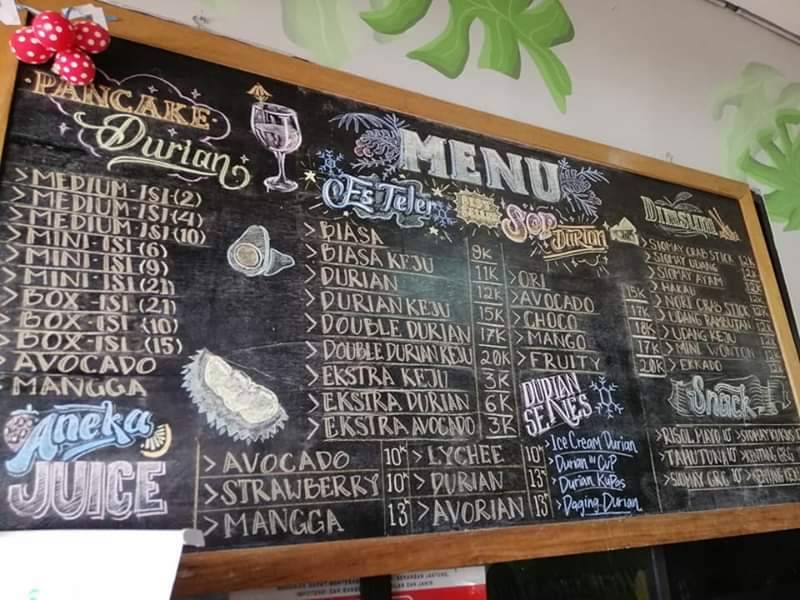 PANCAKE
Durian
> MEDIUM-ISI (2)
> MEDIUM-ISI (4)
> MEDIUM ISI (10)
> MINI-ISI (6)
> MINI-ISI (9)
> MINI ISI (21)
> BOX-ISI (21)
> BOX-ISI (10)
> BOX-ISI (15)
> AVOCADO
> MANGGA
MENU
Es Teler
> BIASA 9K
> BIASA KEJU 11K
> DURIAN 12K
> DURIAN KEJU 15K
> DOUBLE DURIAN 17K
> DOUBLE DURIAN KEJU 20K
> EKSTRA KEJU 3K
> EKSTRA DURIAN 6K
> EKSTRA AVOCADO 3K
SOP
DURIAN
> ORI 15K
> AVOCADO 17K
> CHOCO 18K
> MANGO 17K
> FRUITY 20K
Dimsum
> SIOMAY CRAB STICK 12K
> SIOMAY UDANG
> SIOMAY AYAM
> HAKAU
> NORI CRAB STICK
> UDANG RAMBUTAN
> UDANG KEJU
> MINI WONTON
> EKKADO
Snack
> RISOL MAYO 10K
> TAHU TUNA 10K
> SIOMAY GRG 10K
DURIAN
SERIES
> Ice Cream Durian
> Durian in Cup
> Durian KuPas
> Daging Durian
Aneka
JUICE
> AVOCADO 10K > LYCHEE 10K
> STRAWBERRY 10K > DURIAN 13K
> MANGGA 13K > AVORIAN 13K